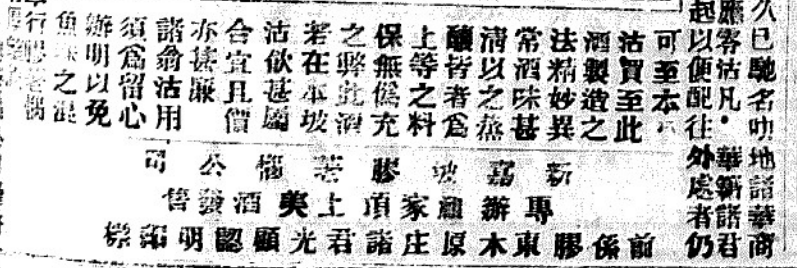 久已馳名叻地諸華商
應客沽凡。華籍諸君
起以便配往外處者仍
可至本
沽買至此
酒製造之
法精妙異
常酒味甚
清以之蒸
釀皆者為
上等之料
保無僞充
之弊此酒
若在本坡
沽飲甚屬
合宜且價
亦甚廉
諸翁沽用
須爲留心
辦明以免
魚之混
新嘉坡膠公司
專辦家頂上美酒發售
前係膠東木原庄諸君光顧認明標